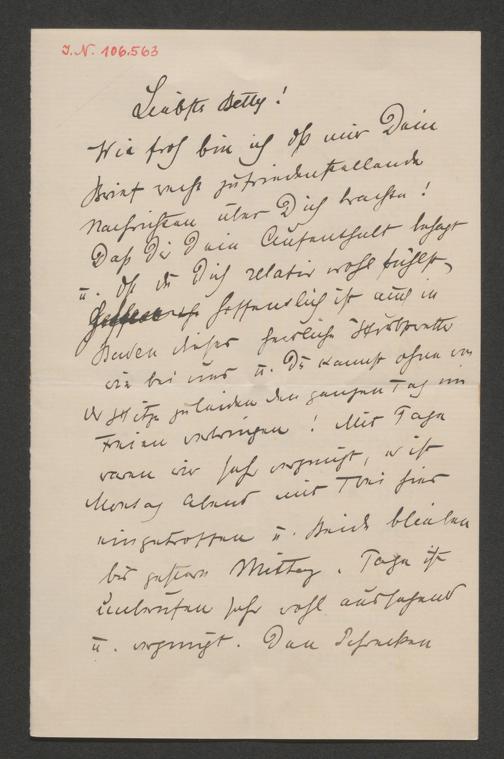 I.N. 106.563
Liebste Betty!
Wie froh bin ich dß mir Dein
Brief recht zufriedenstellende
Nachrichten über Dich brachte!
Daß Dir Dein Aufenthalt behagt
u. dß du Dich relativ wohl fühlst,
hoffentlich ist auch in
Baden dieses herrliche
wie bei uns u. Du kannst ohne von
der Hitze zu leiden den ganzen Tag im
Freien verbringen! Mit
waren wir sehr vergnügt, er ist
Montag Abend mit hier
eingetroffen u. Beide blieben
bis gestern Mittag. ist
unberufen sehr wohl aussehend
u. vergnügt. Den Schrecken